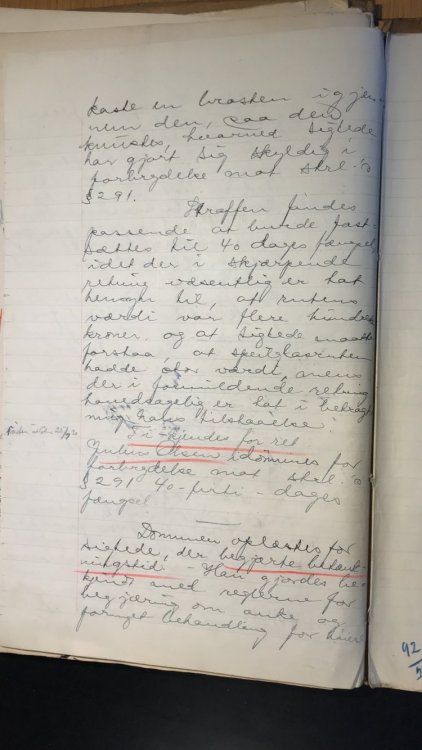 kaste en brosten igjen-
nem den, saa den
knustes, hvormed sigtede
har gjort sig skyldig i
forbrydelse mot strl.'s
§ 291.
Straffen findes
passende at burde fast-
sættes til 40 dages fængsel,
idet der i skjærpende
retning væsentlig er tat
hensyn til, at rutens
værdi var flere hundrede
kroner, og at sigtede maatte
forstaa, at speilglasruten
hadde stor værdi, mens
der i formildende retning
hovedsagelig er tat i betragt-
ning hans tilstaaelse.
Ti kjendes for ret
Julius Olsen idømmes for
forbrydelse mot strl.'s
§ 291 40 - firti - dages
fængsel.
Dommen oplæstes for
sigtede, der begjærte betænk-
ningstid. - Han gjordes be-
kjendt med reglerne for
begjæring om anke og
fornyet behandling for
92